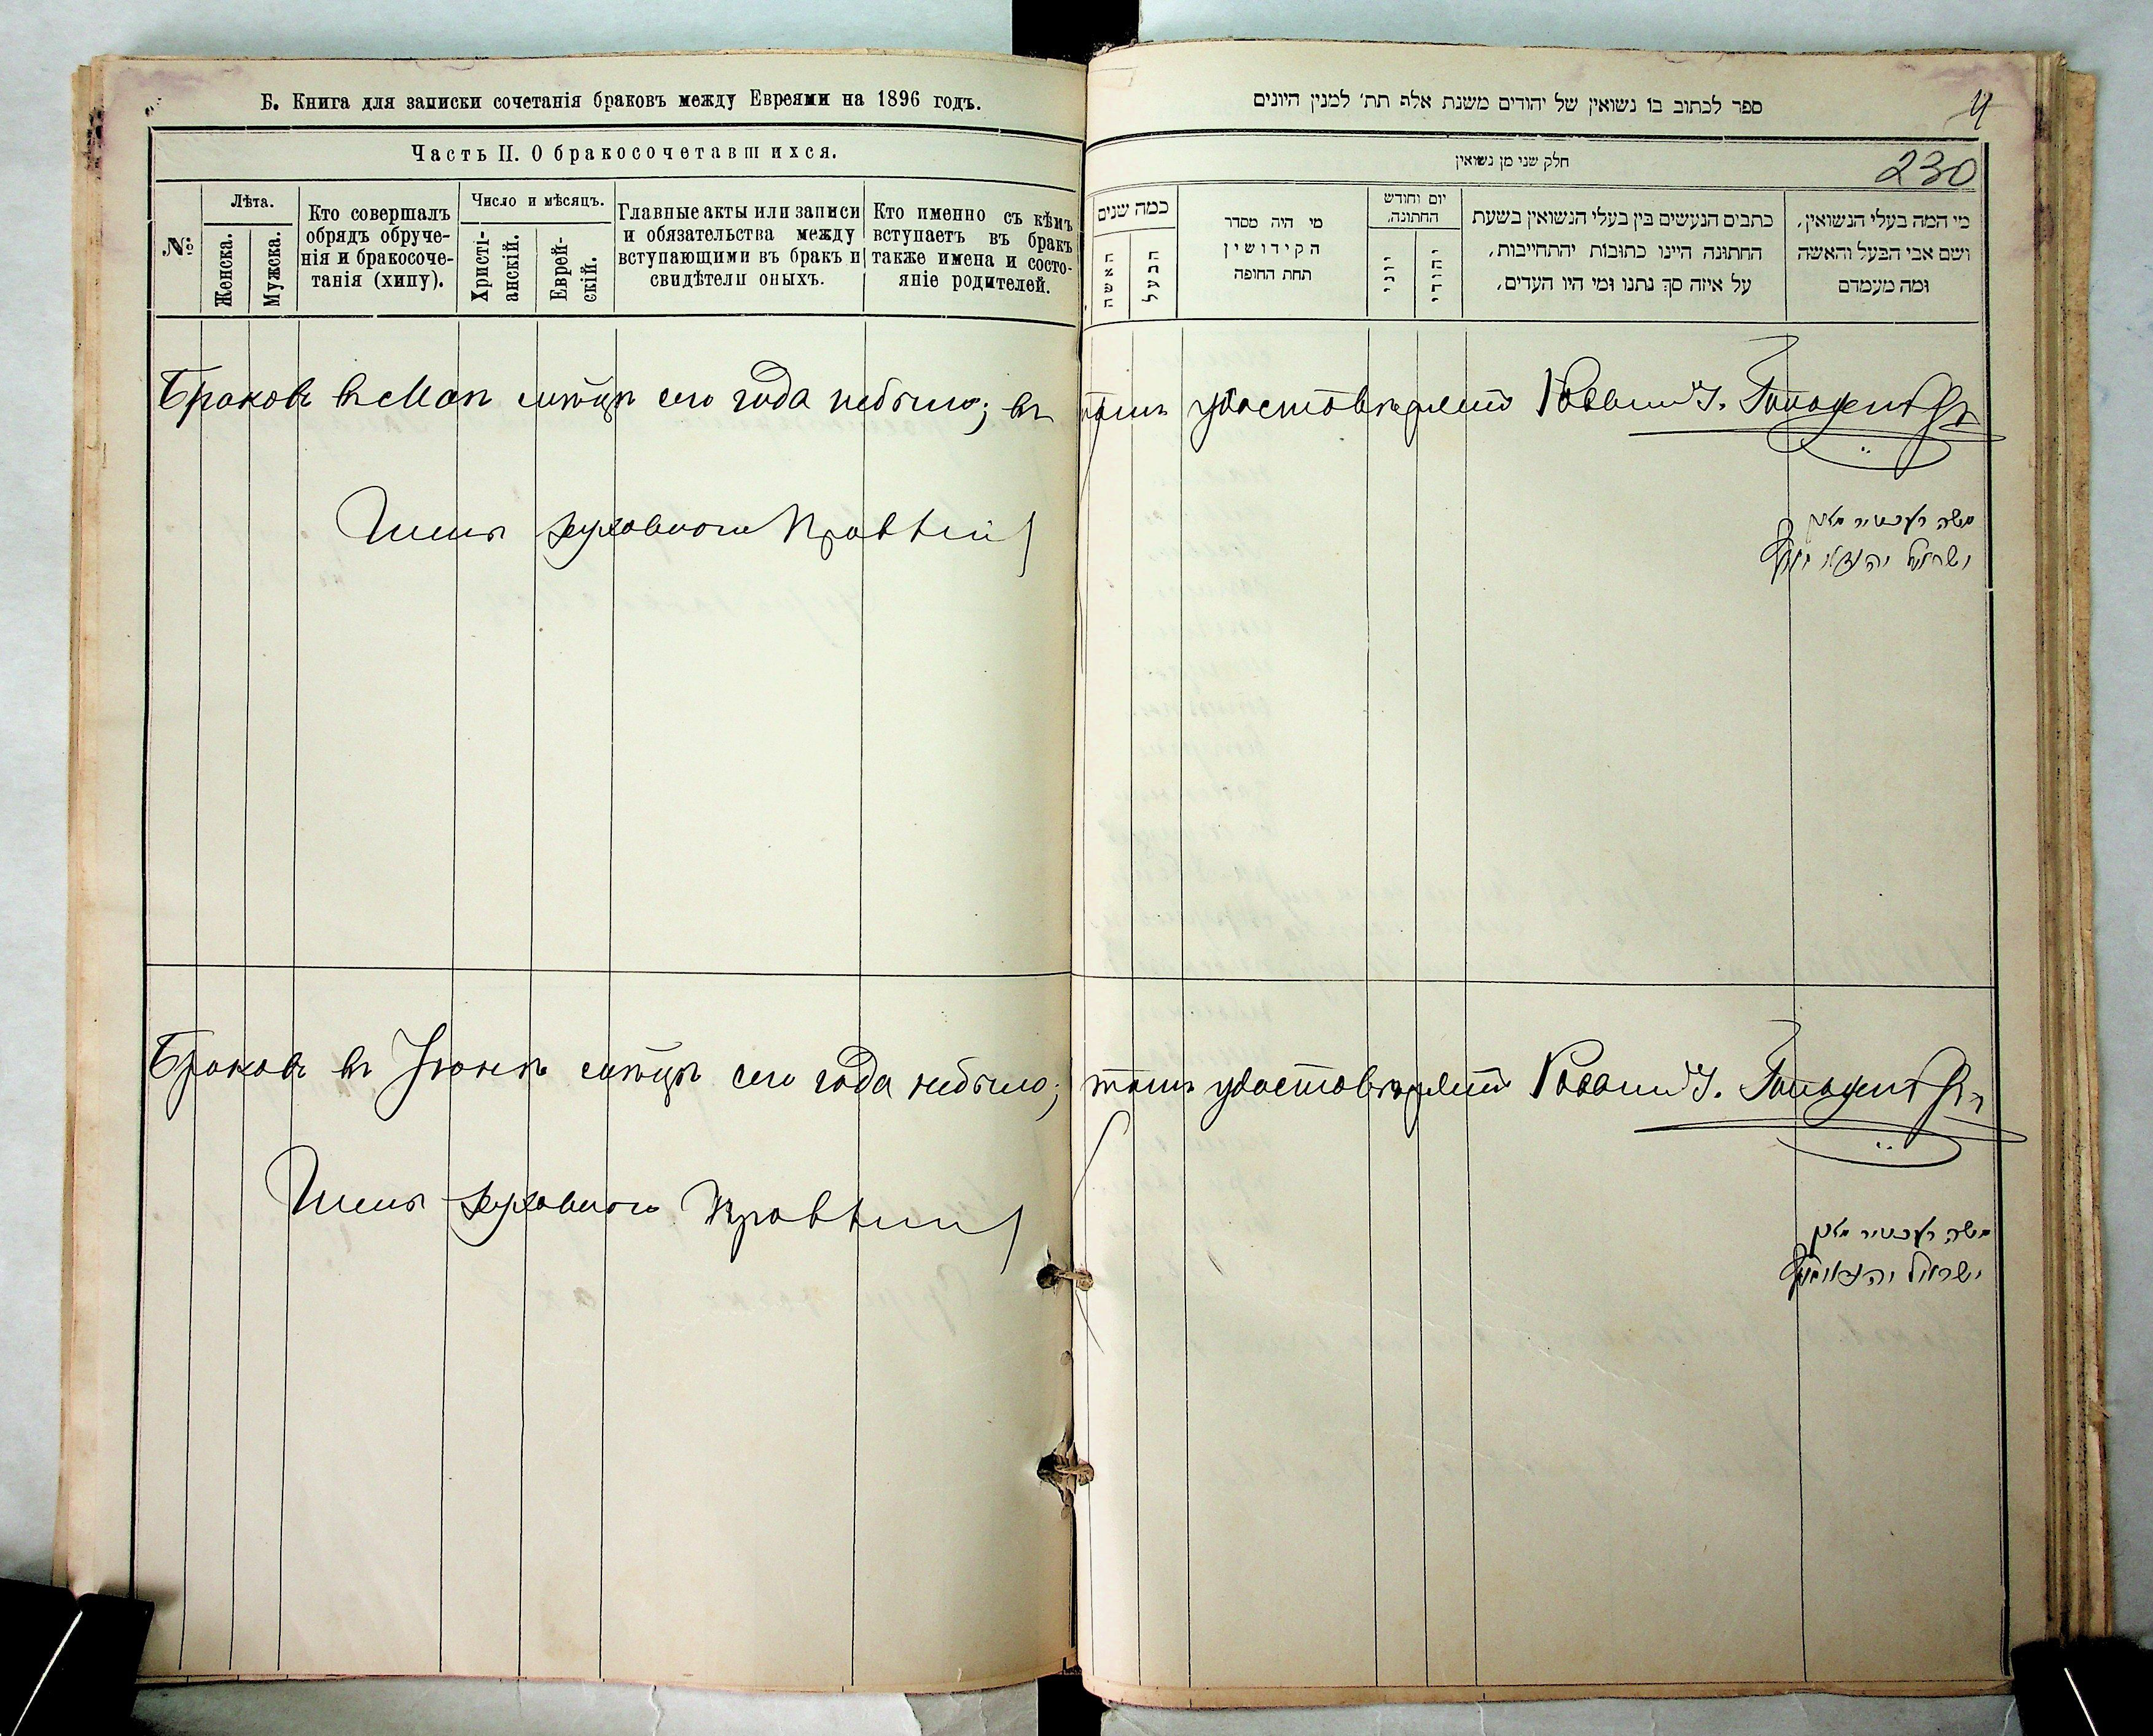 Б. Книга для записки сочетанія браковъ между Евреями на 1896 годъ.
Часть II. О бракосочетавшихся.
№:
Лѣта.
Женска.
Мужска.
Кто совершалъ
обрядъ обруче-
нія и бракосоче-
танія (хипу).
Число и мѣсяцъ.
Христі-
анскій.
Еврей-
скій.
Главные акты или записи
и обязательства между
вступающими въ бракъ и
свидѣтели оныхъ.
Кто именно съ кѣмъ
вступаетъ въ бракъ
также имена и состо-
яніе родителей.
ספר לכתוב בו נשואין של יהודים משנת אלף תת׳ למנין היונים
4
חלק שני מן נשואין
230
כמה שנים
האשה
הבעל
מי היה מסדר
הקידושין
תחת החופה
יום וחודש
החתונה.
יוני
יהודי
כתבים הנעשים בין בעלי הנשואין בשעת
החתונה היינו כתובות יהתחייבות,
על איזה סך נתנו ומי היו העדים,
מי המה בעלי הנשואין,
ושם אבי הבעל והאשה
ומה מעמדם
Браковъ въ Маѣ мѣсяцѣ сего года небыло; въ томъ удостовѣряетъ Раввинъ
Члены духовнаго Правленія
משה
ישראל
Браковъ въ Іюнѣ мѣсяцѣ сего года небыло; въ томъ удостовѣряетъ Раввинъ
Члены духовнаго Правленія
משה
ישראל